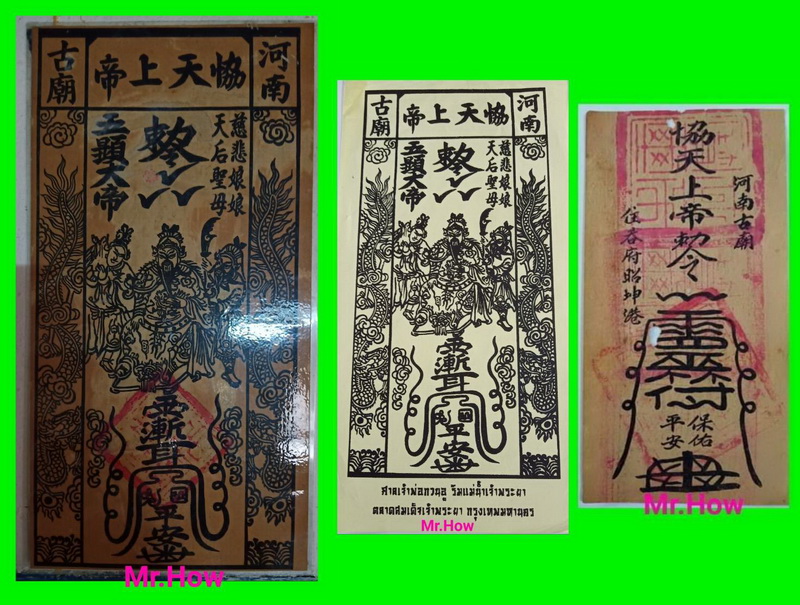 河南
恊天上帝
古廟
慈悲娘娘
天后聖母
敕令
五顯大帝
平安
Mr.How
河南
恊天上帝
古廟
慈悲娘娘
天后聖母
敕令
五顯大帝
平安
ศาลเจ้าพ่อกวนอู ริมแม่น้ำเจ้าพระยา
ตลาดสมเด็จเจ้าพระยา กรุงเทพมหานคร
Mr.How
河南古廟
恊天上帝敕令
府昭坤港
保佑
平安
Mr.How